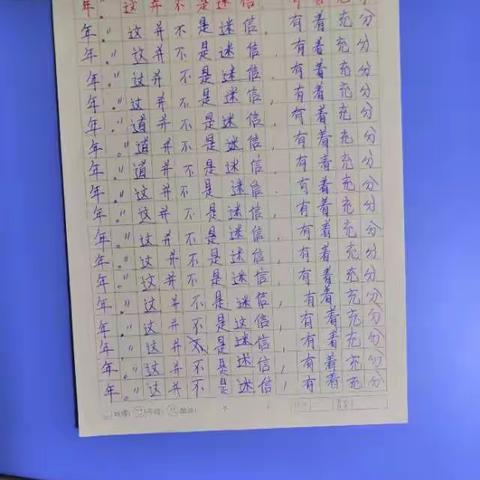 年。"这并不是迷信,有着充分
年。"这并不是迷信,有着充分
年。"这并不是迷信,有着充分
年。"这并不是迷信,有着充分
年。"这并不是迷信,有着充分
年。"道并不是迷信,有着充分
年。"道并不是迷信,有着充分
年。"道并不是迷信,有着充分
年。"这并不是迷信,有着充分
年。"这并不是迷信,有着充分
年。"这并不是迷信,有着充分
年。"这并不是迷信,有着充分
年。"这并不是迷信,有着充分
年。"这并不是迷信,有着充分
年。"这并不是这信,有着充分
年。"这并不是迷信,有着充分
年。"这并不是迷信,有着充分
年。"这并不是迷信,有着充分